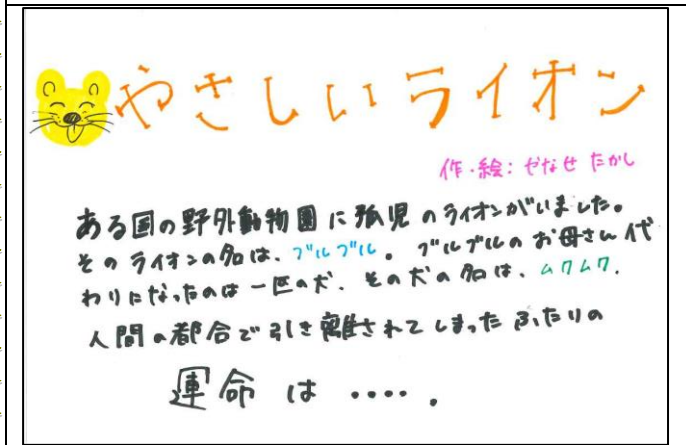 やさしいライオン
作・絵：やなせ たかし
ある国の野外動物園に孤児のライオンがいました。
そのライオンの名は、ブルブル。ブルブルのお母さん代
わりになったのは一匹の犬、その犬の名は、ムクムク.
人間の都合で引き離されてしまった ふたりの
運命 は ‥‥.